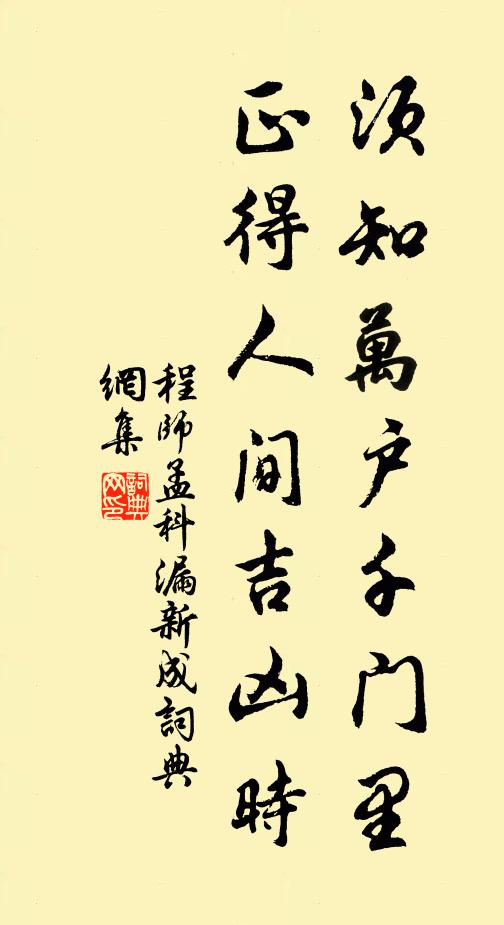 须知萬户千门里
正得人间吉凶時
程師孟科漏新成詞典
網集
詞典
网印